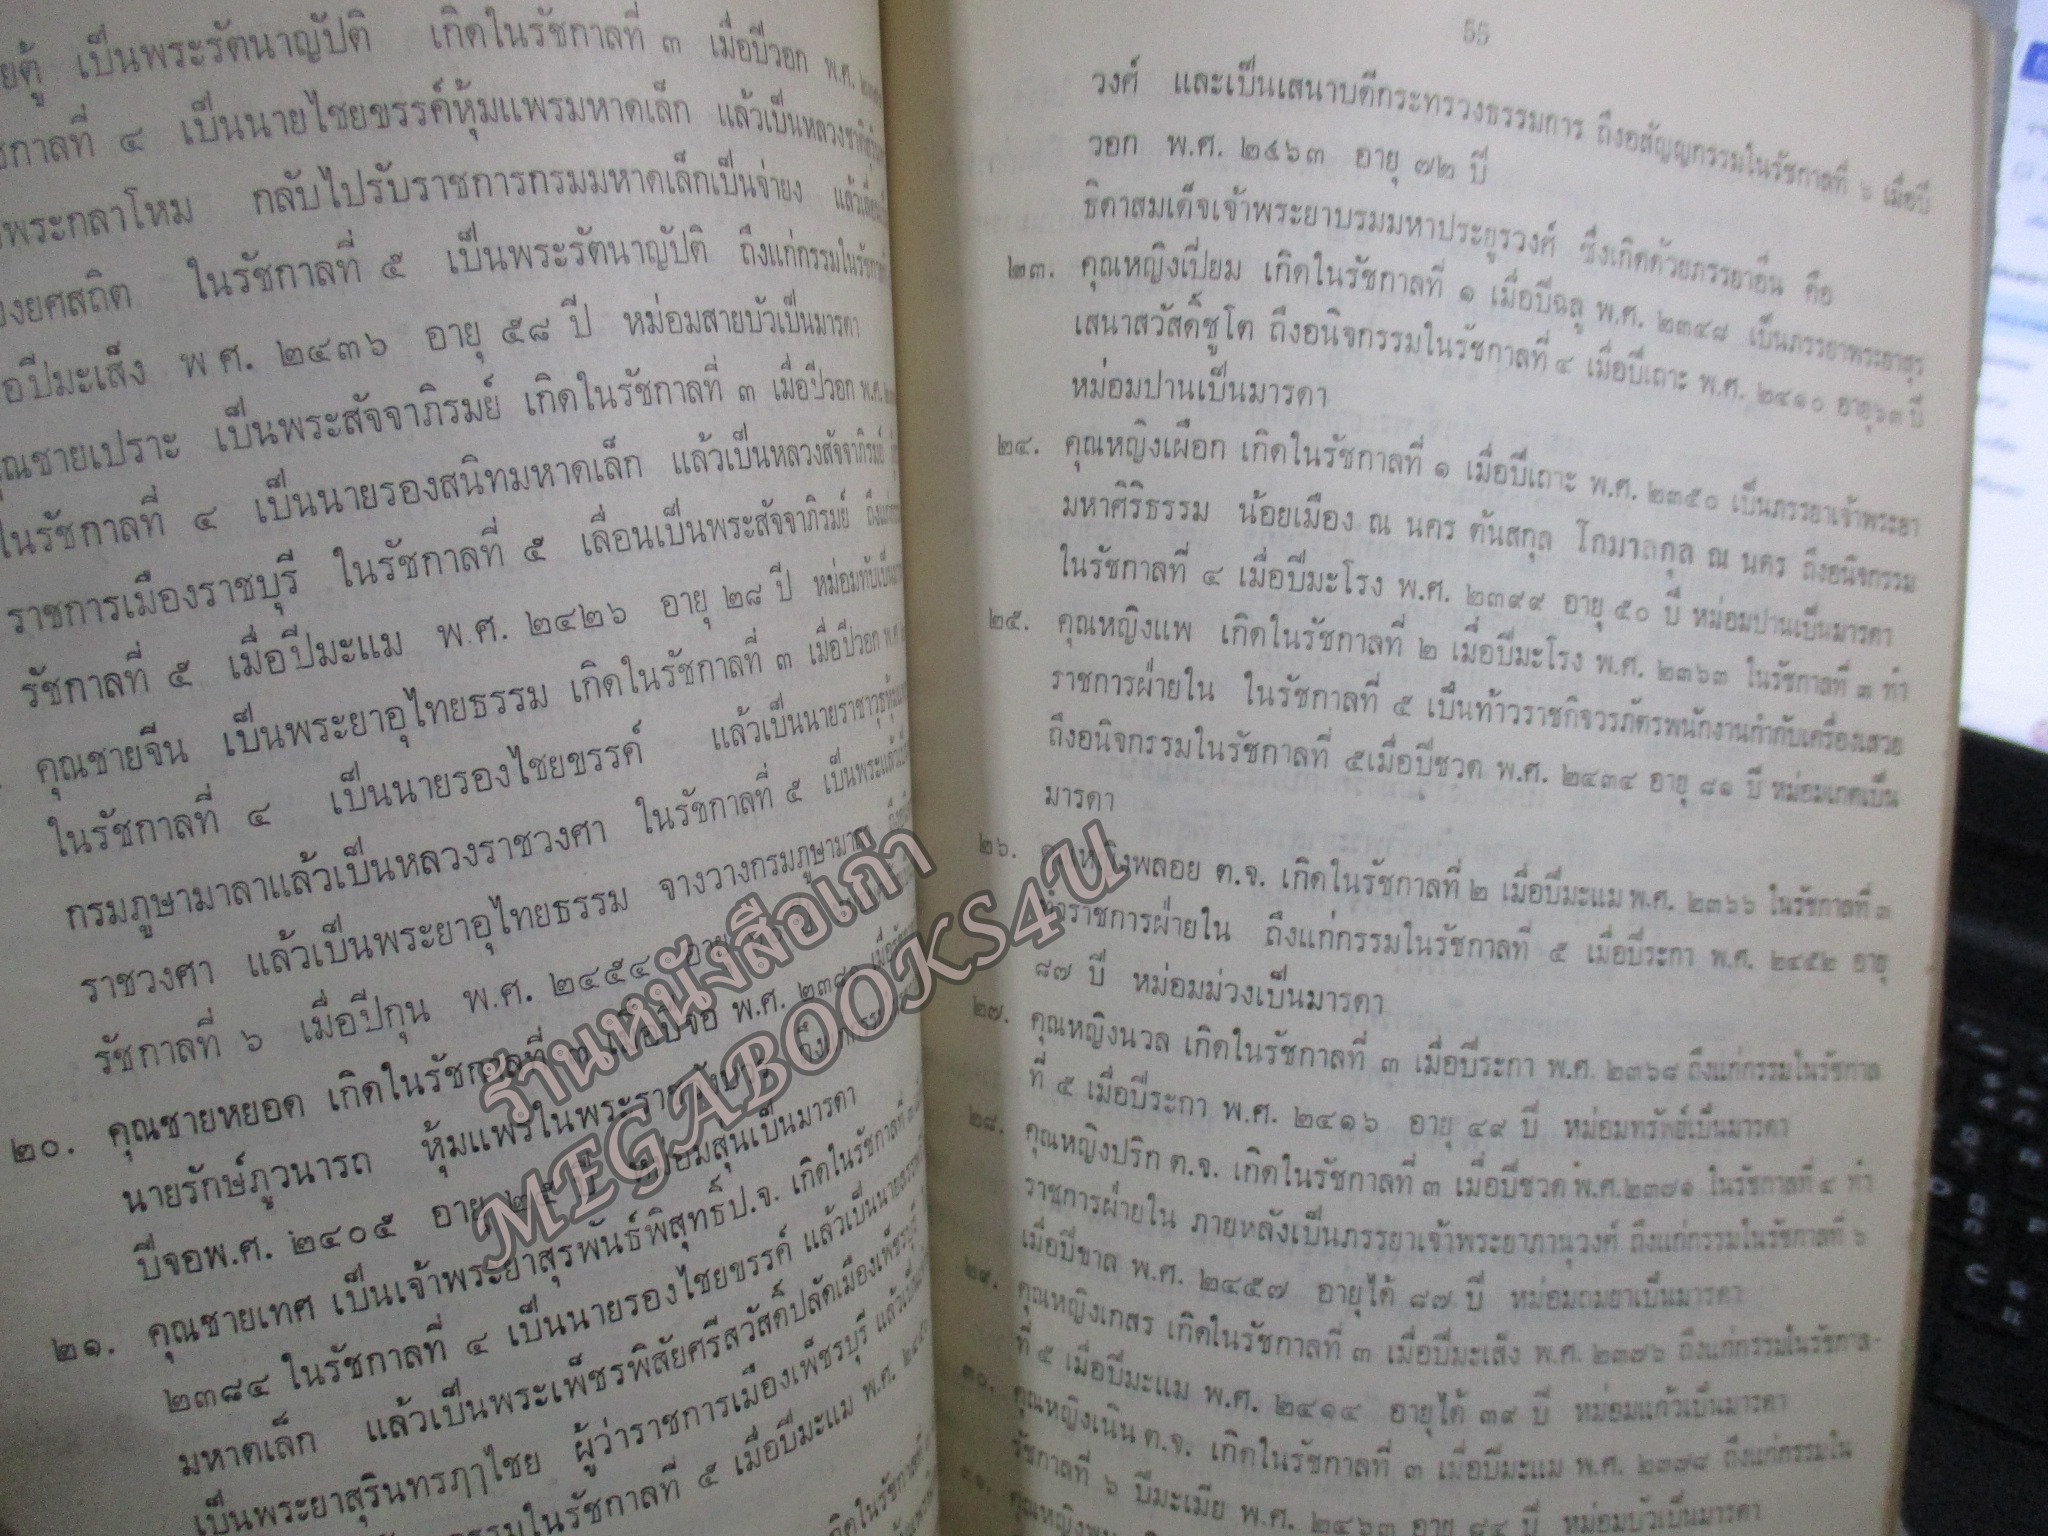 ยตู้ เป็นพระรัตนาญัปติ เกิดในรัชกาลที่ ๓ เมื่อปีวอก พ.ศ.
ชกาลที่ ๔ เป็นนายไชยขรรค์หุ้มแพรมหาดเล็ก แล้วเป็นหลวง
พระกลาโหม กลับไปรับราชการกรมมหาดเล็กเป็นจ่ายง
งยศสถิต ในรัชกาลที่ ๕ เป็นพระรัตนาญัปติ ถึงแก่กรรมใน
อปีมะเส็ง พ ศ. ๒๔๓๖ อายุ ๕๘ ปี หม่อมสายบัวเป็นมารดา
ุณชายเปราะ เป็นพระสัจจาภิรมย์ เกิดในรัชกาลที่ ๓ เมื่อปีวอก พ.ศ.
ในรัชกาลที่ ๔ เป็นนายรองสนิทมหาดเล็ก แล้วเป็นหลวงสัจจาภิรมย์
ราชการเมืองราชบุรี ในรัชกาลที่ ๕ เลื่อนเป็นพระสัจจาภิรมย์
รัชกาลที่ ๕ เมื่อปีมะแม พ.ศ. ๒๔๒๖ อายุ ๒๘ ปี
คุณชายจีน เป็นพระยาอุไทยธรรม เกิดในรัชกาลที่ ๓ เมื่อปีวอก พ.ศ
ในรัชกาลที่ ๔ เป็นนายรองไชยขรรค์ แล้วเป็นนายราชาวุธ
กรมภูษามาลาแล้วเป็นหลวงราชวงศา ในรัชกาลที่ ๕ เป็นพระ
ราชวงศา แล้วเป็นพระยาอุไทยธรรม จางวางกรมภูษามาลา
รัชกาลที่ ๖ เมื่อปีกุน พ.ศ. ๒๔๕๔ อายุ
๒๐. คุณชายหยอด เกิดในรัชกาลที่ ๓ เมื่อปีจอ พ.ศ.
นายรักษ์ภูวนารถ หุ้มแพรในพระราชวังบวร ถึงแก่กรรม
ปีจอพ.ศ. ๒๔๐๕ อายุ ๒๕ ปี หม่อมสุ่นเป็นมารดา
๒๑. คุณชายเทศ เป็นเจ้าพระยาสุรพันธ์พิสุทธิ์ป.จ. เกิดในรัชกาลที่
๒๓๘๔ ในรัชกาลที่ ๔ เป็นนายรองไชยขรรค์ แล้วเป็นนาย
มหาดเล็ก แล้วเป็นพระเพ็ชรพิสัยศรีสวัสดิ์ปลัดเมืองเพ็ชรบุรี
เป็นพระยาสุรินทรฦๅไชย ผู้ว่าราชการเมืองเพ็ชรบุรี
กรรมในรัชกาลที่ ๕ เมื่อปีมะแม พ.ศ.
เกิดในรัชกาลที่
55
วงศ์ และเป็นเสนาบดีกระทรวงธรรมการ ถึงอสัญญกรรมในรัชกาลที่ ๖ เมื่อปี
วอก พ.ศ. ๒๔๖๓ อายุ ๗๒ ปี
ธิดาสมเด็จเจ้าพระยาบรมมหาประยูรวงศ์ ซึ่งเกิดด้วยภรรยาอื่น คือ
๒๓. คุณหญิงเปี่ยม เกิดในรัชกาลที่ ๑ เมื่อปีฉลู พ.ศ. ๒๓๔๘ เป็นภรรยาพระยาสุร
เสนาสวัสดิ์ชูโต ถึงอนิจกรรมในรัชกาลที่ ๔ เมื่อปีเถาะ พ.ศ. ๒๔๑๐ อายุ๖๓ ปี
หม่อมปานเป็นมารดา
๒๔. คุณหญิงเผือก เกิดในรัชกาลที่ ๑ เมื่อปีเถาะ พ.ศ. ๒๓๕๐ เป็นภรรยาเจ้าพระยา
มหาศิริธรรม น้อยเมือง ณ นคร ต้นสกุล โกมาลกุล ณ นคร ถึงอนิจกรรม
ในรัชกาลที่ ๔ เมื่อปีมะโรง พ.ศ. ๒๓๙๙ อายุ ๕๐ ปี หม่อมปานเป็นมารดา
๒๕. คุณหญิงแพ เกิดในรัชกาลที่ ๒ เมื่อปีมะโรง พ.ศ. ๒๓๖๓ ในรัชกาลที่ ๓ ทำ
ราชการฝ่ายใน ในรัชกาลที่ ๕ เป็นท้าวราชกิจวรภัตรพนักงานกำกับเครื่องเสวย
ถึงอนิจกรรมในรัชกาลที่ ๕เมื่อปีชวด พ.ศ. ๒๔๓๔ อายุ ๘๑ ปี หม่อมเกตเป็น
มารดา
๒๖. คุณหญิงพลอย ต.จ. เกิดในรัชกาลที่ ๒ เมื่อปีมะแม พ.ศ. ๒๓๖๖ ในรัชกาลที่ ๓
ทำราชการฝ่ายใน ถึงแก่กรรมในรัชกาลที่ ๕ เมื่อปีระกา พ.ศ. ๒๔๕๒ อายุ
๘๗ ปี หม่อมม่วงเป็นมารดา
๒๗. คุณหญิงนวล เกิดในรัชกาลที่ ๓ เมื่อปีระกา พ.ศ. ๒๓๖๘ ถึงแก่กรรมในรัชกาล
ที่ ๕ เมื่อปีระกา พ.ศ. ๒๔๑๖ อายุ ๔๙ ปี หม่อมทรัพย์เป็นมารดา
๒๘. คุณหญิงปริก ต.จ. เกิดในรัชกาลที่ ๓ เมื่อปีชวด พ.ศ.๒๓๗๑ ในรัชกาลที่ ๔ ทำ
ราชการฝ่ายใน ภายหลังเป็นภรรยาเจ้าพระยาภานุวงศ์ ถึงแก่กรรมในรัชกาลที่ ๖
เมื่อปีขาล พ.ศ. ๒๔๕๗ อายุได้ ๘๗ ปี หม่อมถมยาเป็นมารดา
๒๙. คุณหญิงเกสร เกิดในรัชกาลที่ ๓ เมื่อปีมะเส็ง พ.ศ. ๒๓๗๖ ถึงแก่กรรมในรัชกาล-
ที่ ๕ เมื่อปีมะแม พ.ศ. ๒๔๑๔ อายุได้ ๓๙ ปี หม่อมแก้วเป็นมารดา
๓๐. คุณหญิงเนิน ต.จ. เกิดในรัชกาลที่ ๓ เมื่อปีมะแม พ.ศ. ๒๓๗๘ ถึงแก่กรรมใน
รัชกาลที่ ๖ ปีมะเมีย พ.ศ. ๒๔๖๓ อายุ ๘๔ ปี หม่อมบัวเป็นมารดา
ร้านหนังสือเก่า
MEGABOOKS4U